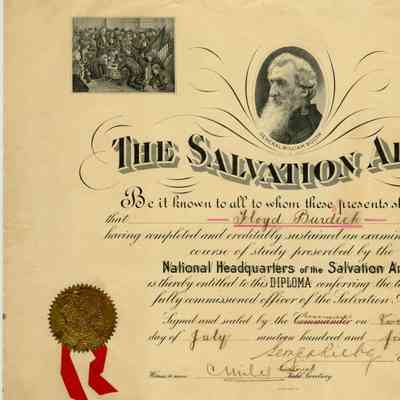 GENERAL WILLIAM BOOTH
THE SALVATION AR
Be it known to all to whom these presents sh
that — Floyd Burdick —
having completed and creditably sustained an examin
course of study prescribed by the
National Headquarters of the Salvation Ar
is thereby entitled to this DIPLOMA conferring the
fully commissioned officer of the Salvation A
Signed and sealed by the Commander on
day of July nineteen hundred and
Secretary